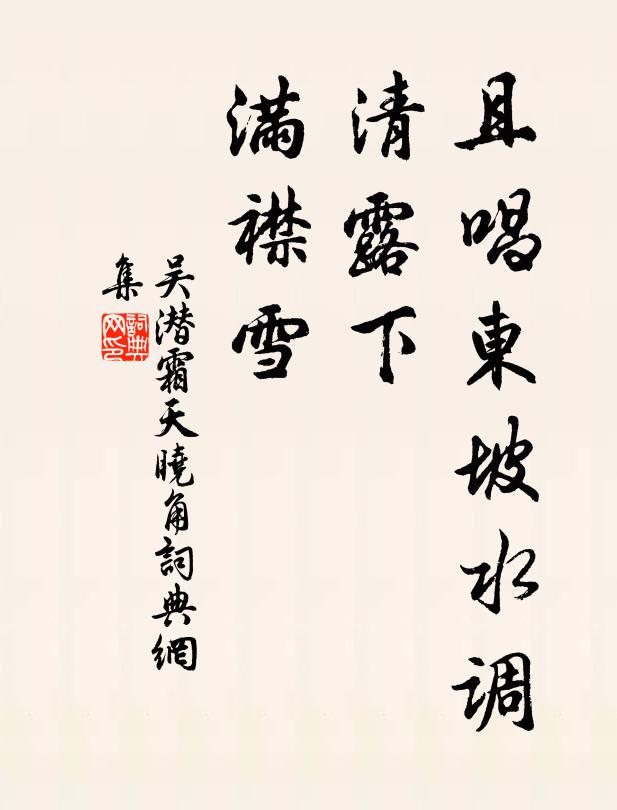 且唱東坡水调
清露下
满襟雪
吴潜霜天曉角詞典網
集
詞典
网印